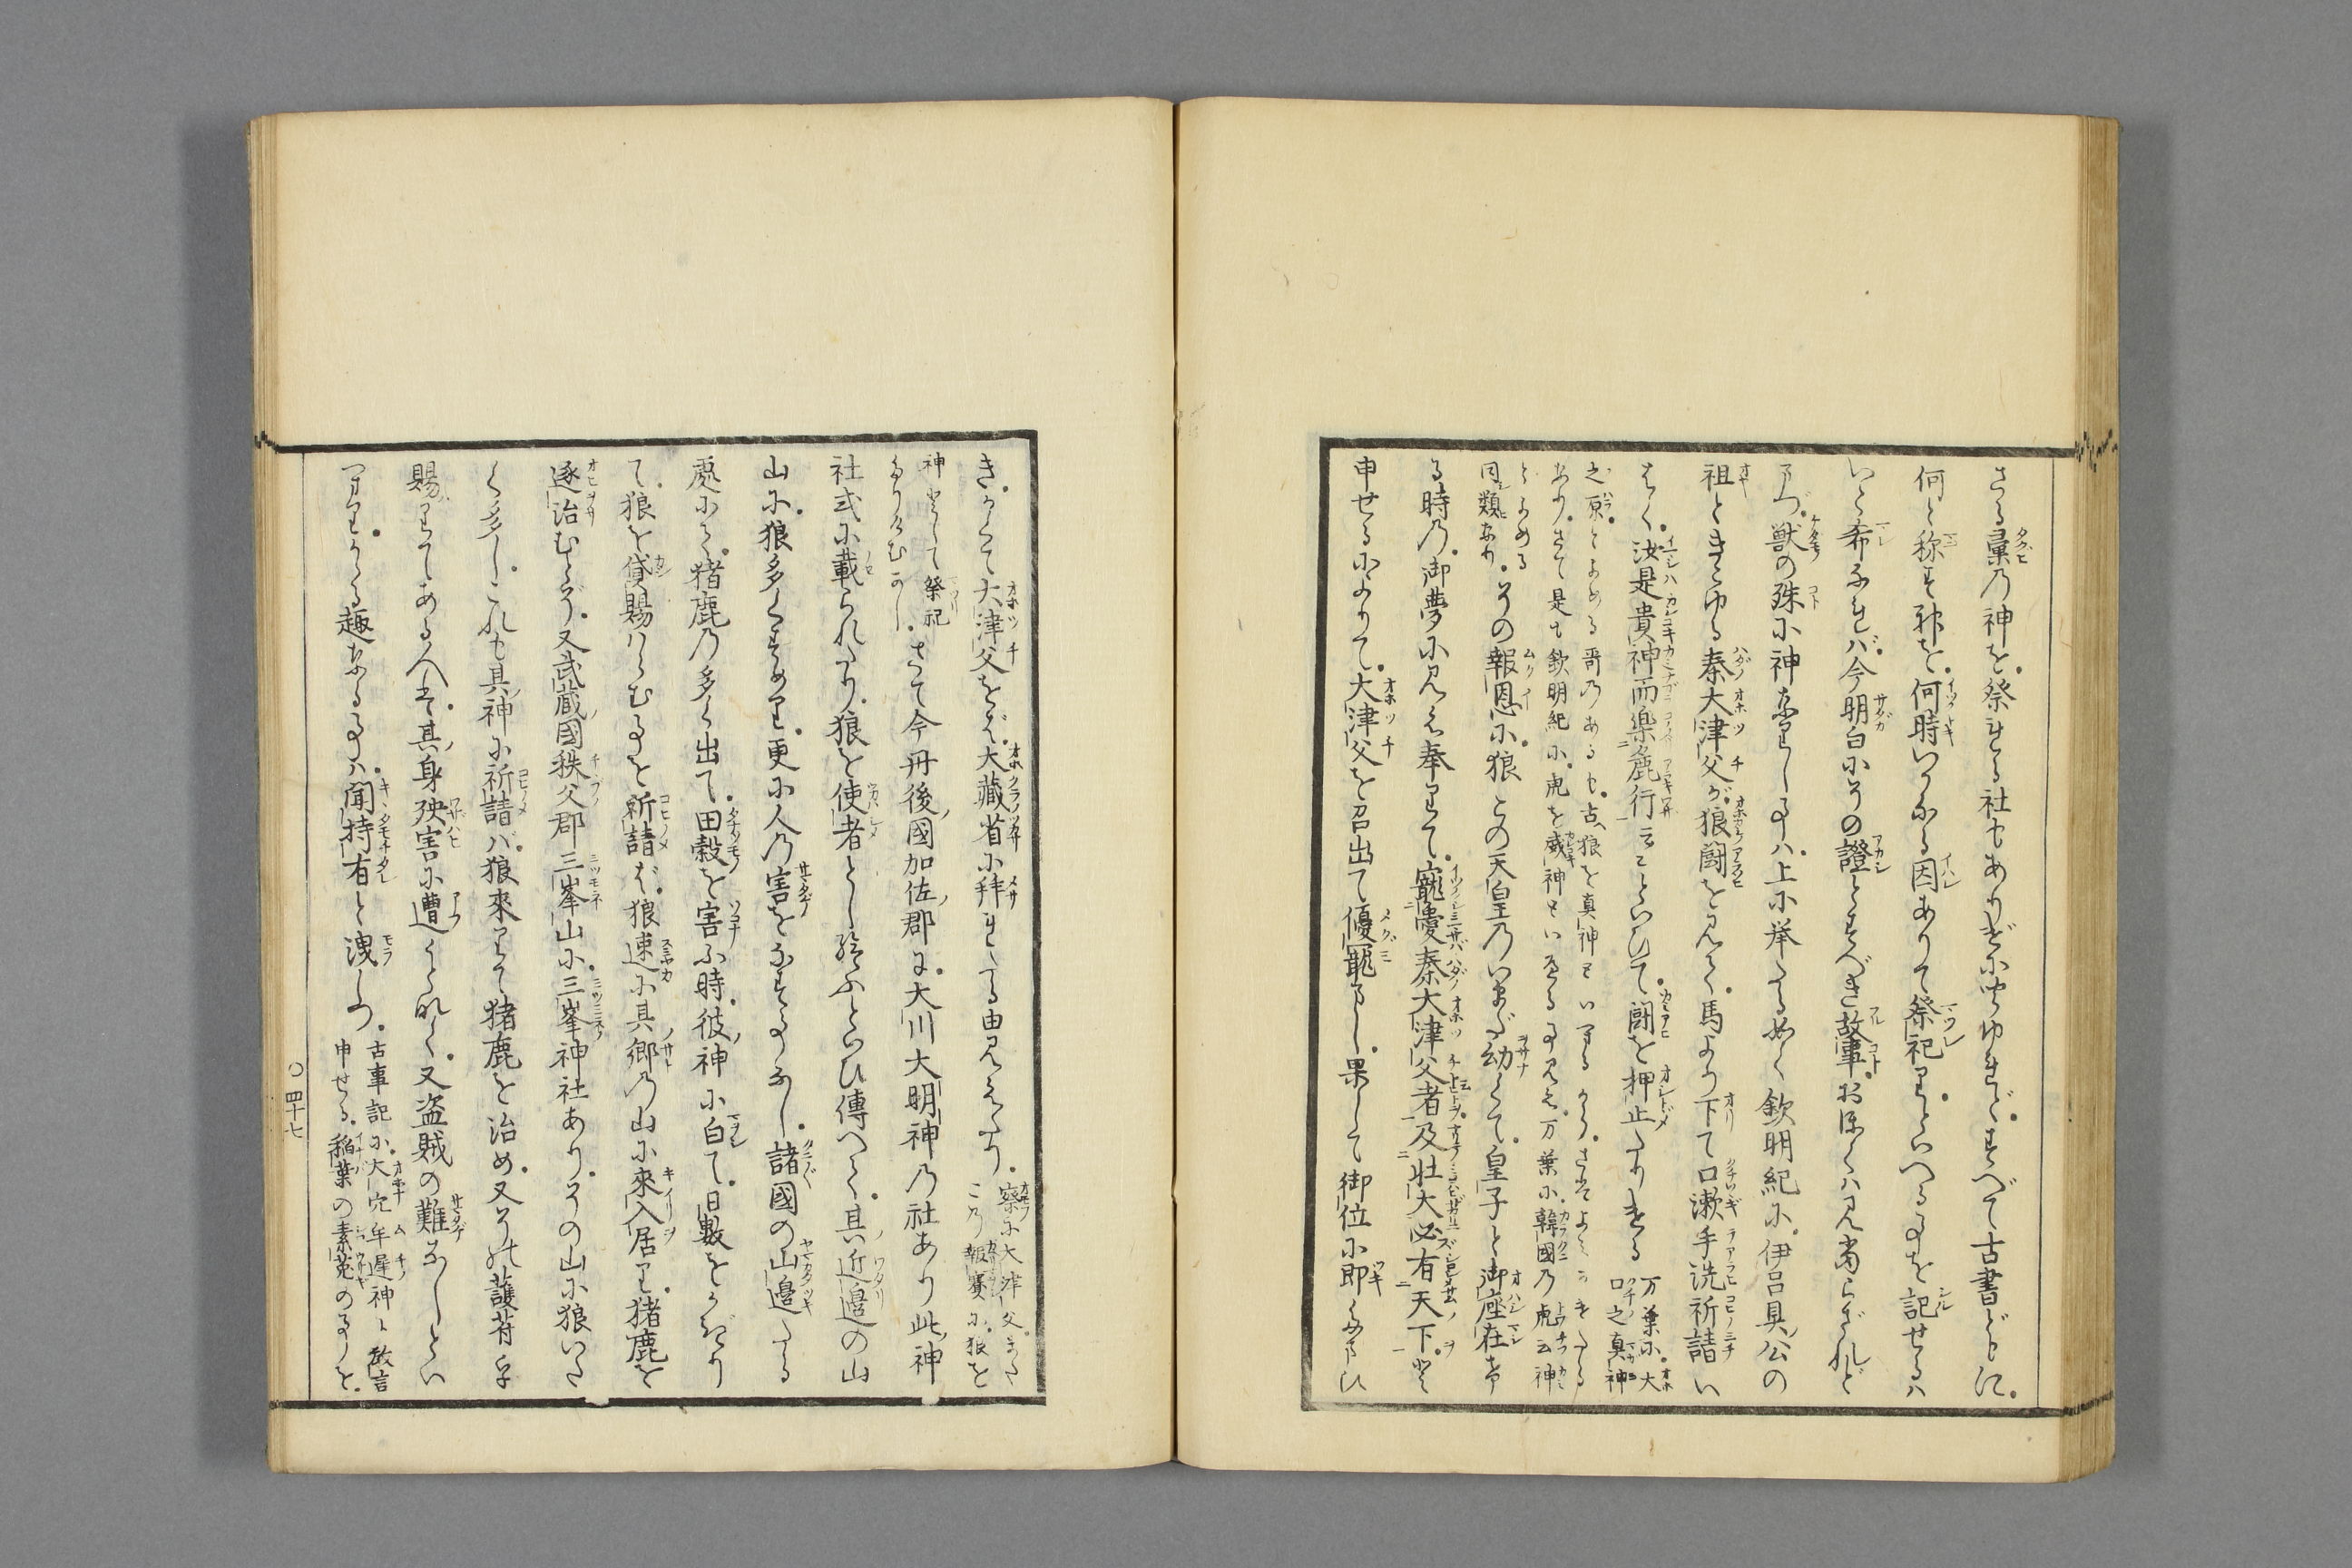 さる彙乃神を。祭れる社もありげに聞ゆれど。すべて古書どもに。
何と称す神を。何時いかなる因ありて祭祀りといへる事を記せるハ
いと希なれバ。今明白にその證とすべき故事。おほくハ見當らざれど
まづ。獣の殊に神なりし事ハ。上に挙たる如く欽明紀に。伊呂具公の
祖ときこゆる秦大津父が。狼闘を見て。馬より下て口漱手洗祈請い
はく。汝是貴神而樂麁行云々といひて。闘を押止たりける
万葉に。大口之真神
之原。とよめる哥乃あるも。古狼を真神といへる
あり。さて是も欽明紀に。虎を威神といへる事見え。万葉に。韓國乃虎云神
とよめる
同類なり。その報恩に。狼この天皇乃いまだ幼くて。皇子と御座在け
る時乃。御夢に見え奉りて。寵愛秦大津父者及壮大必有天下。と
申せるによりて。大津父を召出て優寵まし。果して御位に即給ひ
き。かくて大津父をば。大藏省に拜れたる由見えたり。
察に大津父。また
この報賽に。狼を
神として祭祀
なりけむかし。さて今丹後國加佐郡に。大川大明神乃社あり此神
社式に載られたり。狼を使者とし給ふといひ傳へて。其近邊の山
山に。狼多くすめり。更に人乃害をなす事なし。諸國の山邊たる
處にて。猪鹿乃多く出て。田穀を害ふ時。彼神に白て。日數をかぎり
て。狼を貸賜はらむ事を祈請ば。狼速に其郷乃山に來入居り。猪鹿を
逐治むとぞ。又武藏國秩父郡三峯山に。三峯神社あり。その山に狼いた
く多し。これも其神に祈請バ。狼來りて猪鹿を治め。又その護符を
賜りてある人は。其身殃害に遭うと无く。又盗賊の難なしとい
つたり。かゝる趣なる事ハ。聞持有と洩しつ。
古事記に。大穴牟遅神と教言
申せる。稲葉の素菟の事を。
〇四十七